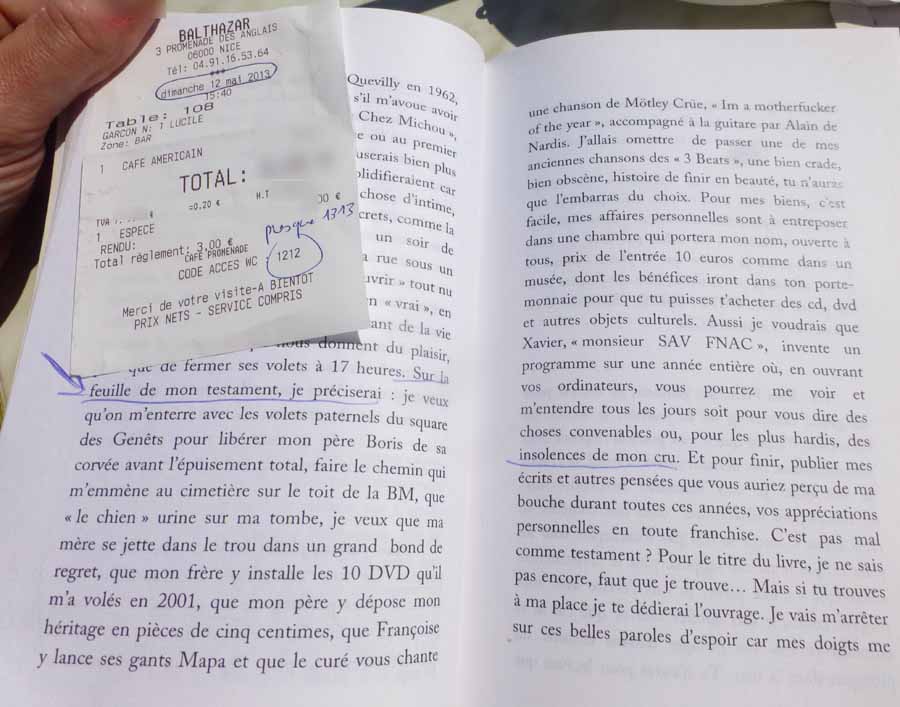 BALTHAZAR
3 PROMENADE DES ANGLAIS
06000 NICE
Tél: 04.91.16.53.64
***
dimanche 12 mai 2013
15:40
Table: 108
GARCON N: 1 LUCILE
Zone: BAR
1 CAFE AMERICAIN
TOTAL:
TVA € =0.20 € H.T 00 €
1 ESPECE
RENDU:
Total réglement: 3,00 €
presque 1313
CAFE PROMENADE
CODE ACCES WC : 1212
Merci de votre visite-A BIENTOT
PRIX NETS - SERVICE COMPRIS
Quevilly en 1962,
s'il m'avoue avoir
Chez Michou »,
ce ou au premier
userais bien plus
olidifieraient car
chose d'intime,
crets, comme la
un soir de
a rue sous un
uvrir » tout nu
en « vrai », en
ant de la vie
nous donnent du plaisir,
que de fermer ses volets à 17 heures. Sur la
feuille de mon testament, je préciserai : je veux
qu'on m'enterre avec les volets paternels du square
des Genêts pour libérer mon père Boris de sa
corvée avant l'épuisement total, faire le chemin qui
m'emmène au cimetière sur le toit de la BM, que
« le chien » urine sur ma tombe, je veux que ma
mère se jette dans le trou dans un grand bond de
regret, que mon frère y installe les 10 DVD qu'il
m'a volés en 2001, que mon père y dépose mon
héritage en pièces de cinq centimes, que Françoise
y lance ses gants Mapa et que le curé vous chante
une chanson de Mötley Crüe, « Im a motherfucker
of the year », accompagné à la guitare par Alain de
Nardis. J'allais omettre de passer une de mes
anciennes chansons des « 3 Beats », une bien crade,
bien obscène, histoire de finir en beauté, tu n'auras
que l'embarras du choix. Pour mes biens, c'est
facile, mes affaires personnelles sont à entreposer
dans une chambre qui portera mon nom, ouverte à
tous, prix de l'entrée 10 euros comme dans un
musée, dont les bénéfices iront dans ton porte-
monnaie pour que tu puisses t'acheter des cd, dvd
et autres objets culturels. Aussi je voudrais que
Xavier, « monsieur SAV FNAC », invente un
programme sur une année entière où, en ouvrant
vos ordinateurs, vous pourrez me voir et
m'entendre tous les jours soit pour vous dire des
choses convenables ou, pour les plus hardis, des
insolences de mon cru. Et pour finir, publier mes
écrits et autres pensées que vous auriez perçu de ma
bouche durant toutes ces années, vos appréciations
personnelles en toute franchise. C'est pas mal
comme testament ? Pour le titre du livre, je ne sais
pas encore, faut que je trouve... Mais si tu trouves
à ma place je te dédierai l'ouvrage. Je vais m'arrêter
sur ces belles paroles d'espoir car mes doigts me